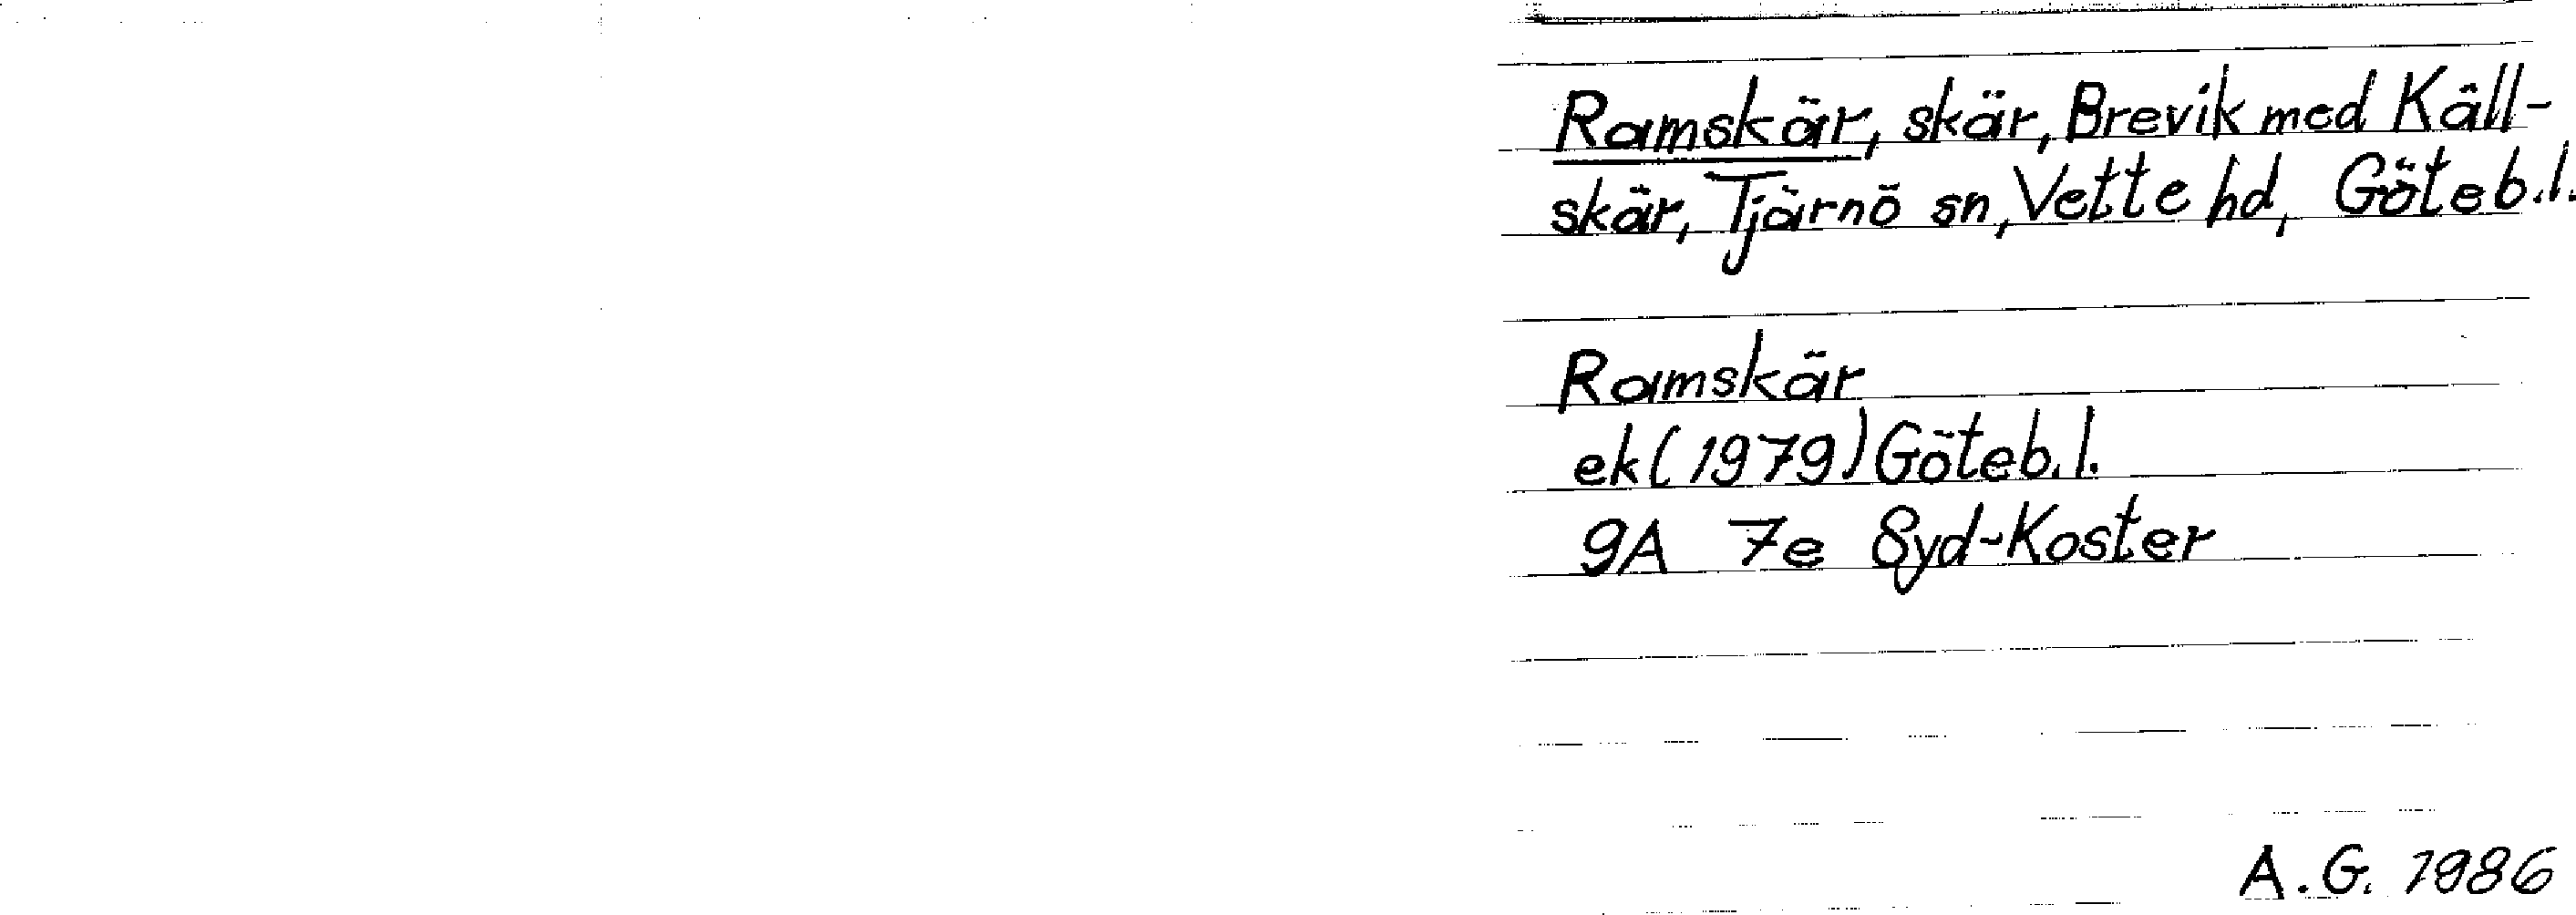 Ramskär, skär, Brevik med Käll-
skär, Tjärnö sn, Vette hd, Göteb.l.
Ramskär
ek (1979) Göteb.l.
9A 7e Syd-Koster
A.G. 1986